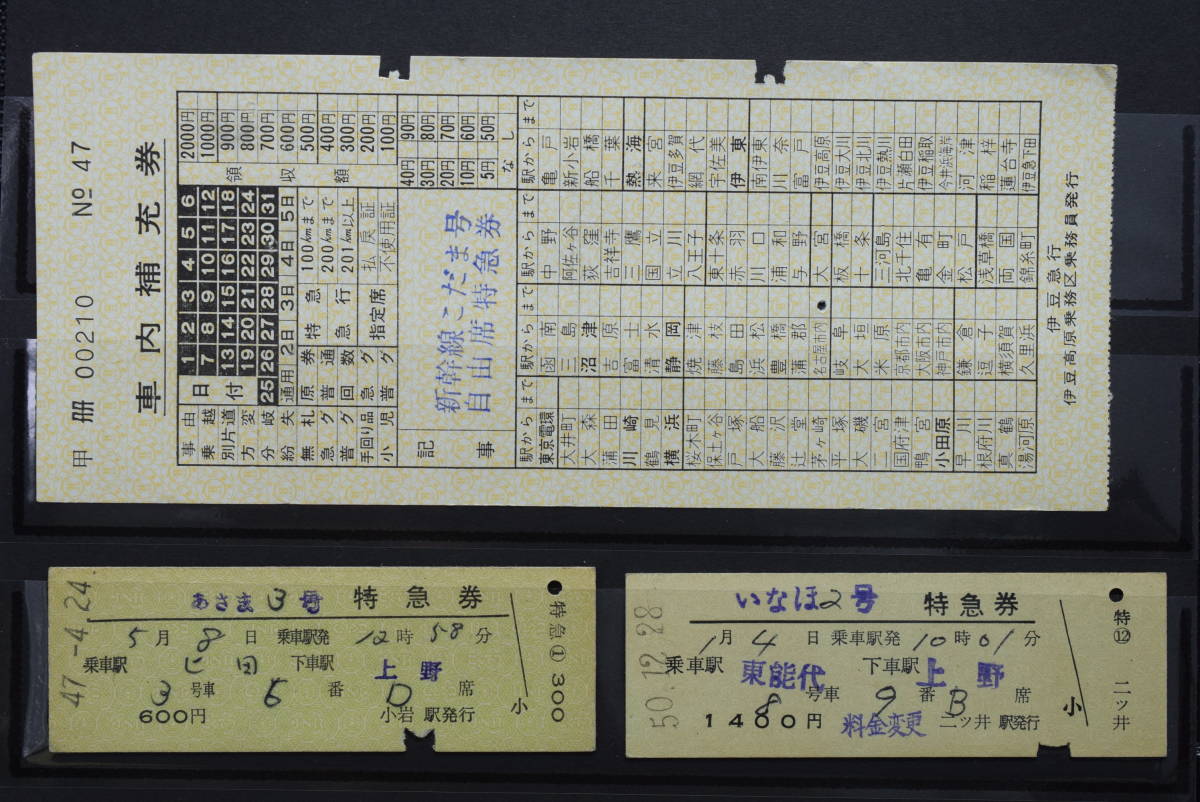 甲 册 00210 № 47
車内補充券
事由 日付 1 2 3 4 5 6 領収額 2000円
乗越 7 8 9 10 11 12 1000円
別片道 13 14 15 16 17 18 900円
方変 19 20 21 22 23 24 800円
分岐 25 26 27 28 29 30 31 700円
紛失 通用 2日 3日 4日 5日 600円
無札 原券 特急 100kmまで 500円
急グ 普通 急行 200kmまで 400円
普グ 回数 201km以上 300円
手回り品 急グ 指定席 払戻証 200円
小児 普グ 不使用証 100円
記事
新幹線こだま号
自由席特急券
40円 90円
30円 80円
20円 70円
10円 60円
5円 50円
なし
駅からまで 駅からまで 駅からまで 駅からまで
東京電環 函南 中野 亀戸
大井町 三島 阿佐ヶ谷 新小岩
大森 沼津 荻窪 船橋
蒲田 吉原 吉祥寺 千葉
川崎 富士 三鷹 熱海
鶴見 清水 国立 来宮
横浜 静岡 立川 伊豆多賀
桜木町 焼津 八王子 網代
保土ヶ谷 藤枝 東十条 宇佐美
戸塚 島田 赤羽 伊東
大船 浜松 川口 南伊東
藤沢 豊橋 浦和 川奈
辻堂 蒲郡 与野 富戸
茅ヶ崎 名古屋市内 大宮 伊豆高原
平塚 岐阜 板橋 伊豆大川
大磯 大垣 十条 伊豆北川
二宮 米原 三河島 伊豆熱川
国府津 京都市内 北千住 片瀬白田
鴨宮 大阪市内 亀有 伊豆稲取
小田原 神戸市内 金町 今井浜海岸
早川 鎌倉 松戸 河津
根府川 逗子 浅草橋 稲梓
真鶴 横須賀 両国 蓮台寺
湯河原 久里浜 錦糸町 伊豆急下田
伊豆急行
伊豆高原乗務区乗務員発行
47-4.24
あさま3号 特急券
5月8日 乗車駅発 12時58分
乗車駅 上田 下車駅 上野
3号車 5番 D席
600円 小岩駅発行
小
特急① 300
50.12.28
いなほ2号 特急券
1月4日 乗車駅発 10時01分
乗車駅 東能代 下車駅 上野
8号車 9番 B席
1400円 料金変更 二ツ井駅発行
小
特⑫ 二ツ井